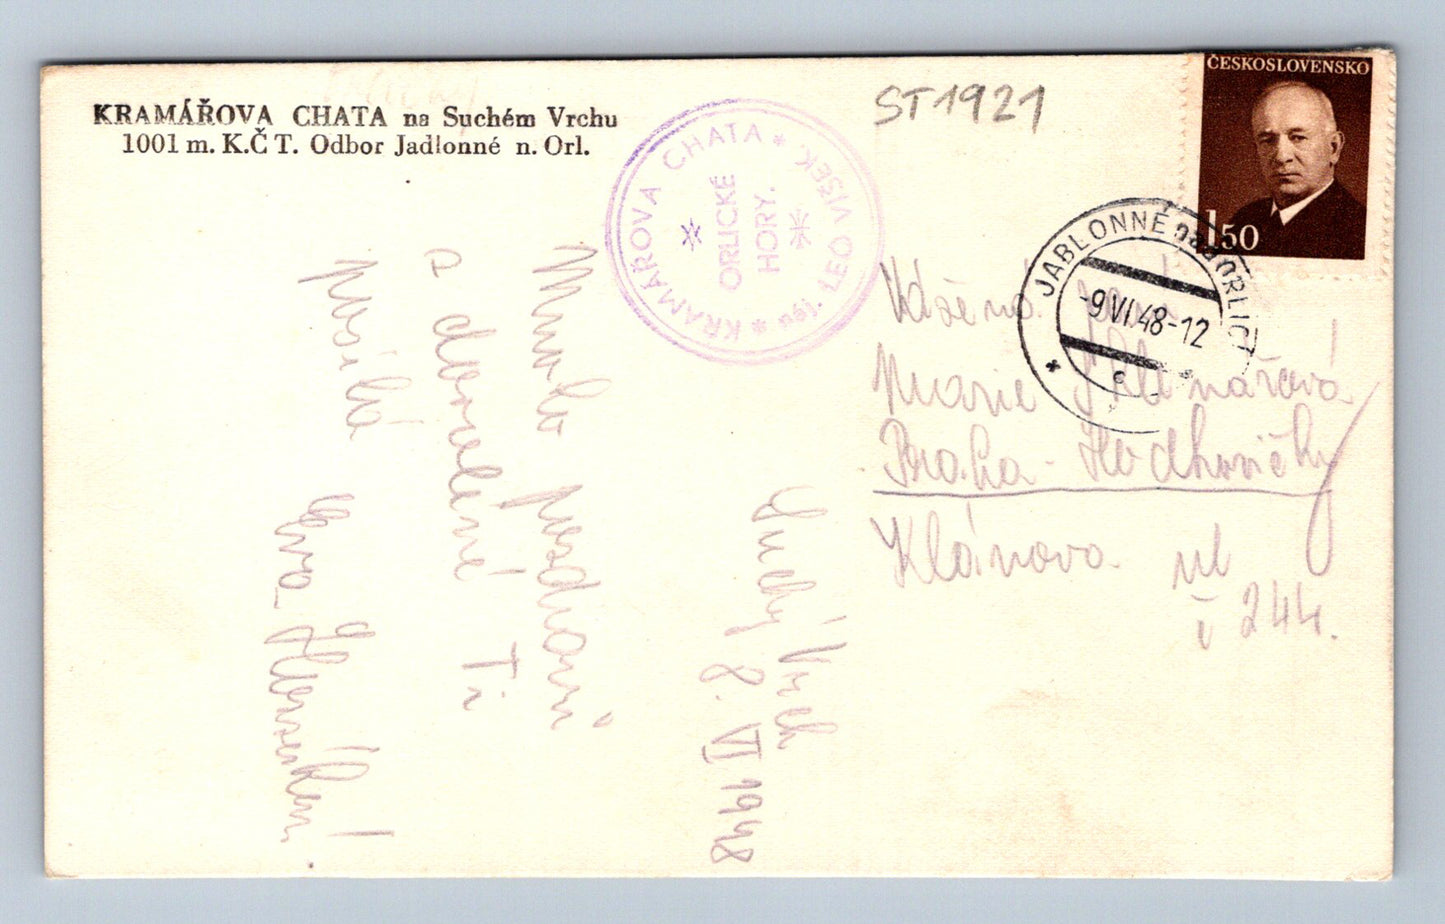 KRAMÁŘOVA CHATA na Suchém Vrchu
1001 m. K.Č T. Odbor Jadlonné n. Orl.
KRAMÁŘOVA CHATA * náj. LEO VIŠEK. *
ORLICKÉ
HORY.
ST1921
ČESKOSLOVENSKO
1,50
JABLONNÉ nad ORLICÍ
-9.VI.48-12
c
Suchý Vrch
8. VI 1948
Mnoho pozdravů
z dovolené Ti
posílá Eva
Vážená
Marie
Praha -
Klánova ul
č 244.